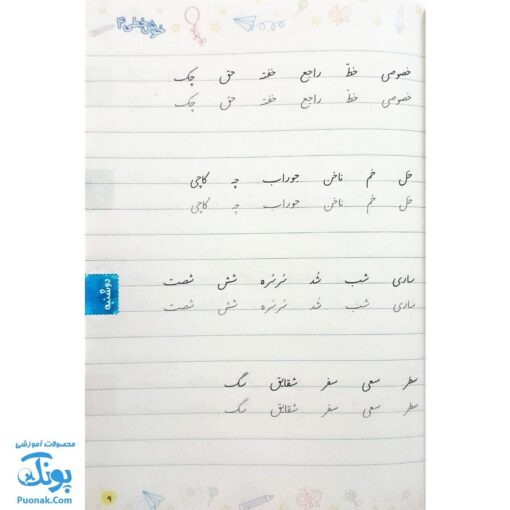 خوش خطی ۴
خصوصی خطّ راجع خفته حق چک
خصوصی خطّ راجع خفته حق چک
حل خم ناخن جوراب چه کاچی
حل خم ناخن جوراب چه کاچی
ساری شب شد نرنره شش شصت
ساری شب شد نرنره شش شصت
دوشنبه
سطر سعی سفر شقایق سگ
سطر سعی سفر شقایق سگ
محصولات آموزشی
پونک
Puonak.Com
۹